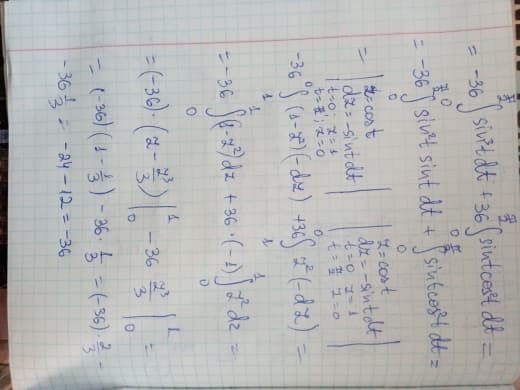 = -36 ∫₀^{π/2} sin³t dt + 36 ∫₀^{π/2} sint cos²t dt =
= -36 ∫₀^{π/2} sin²t sint dt + ∫₀^{π/2} sint cos²t dt =
= | z=cost | z=cost |
dz=-sint dt dz=-sint dt
t=0; z=1 t=0 z=1
t=π/2; z=0 t=π/2 z=0
-36 ∫₁⁰ (1-z²)(-dz) +36 ∫₁⁰ z²(-dz) =
= -36 ∫₀¹ (1-z²) dz + 36·(-1) ∫₀¹ z² dz =
= (-36)·(z - z³/3) |₀¹ - 36 z³/3 |₀¹ =
= (-36)(1 - 1/3) - 36·1/3 = (-36)·2/3 -
-36 1/3 = -24-12 = -36